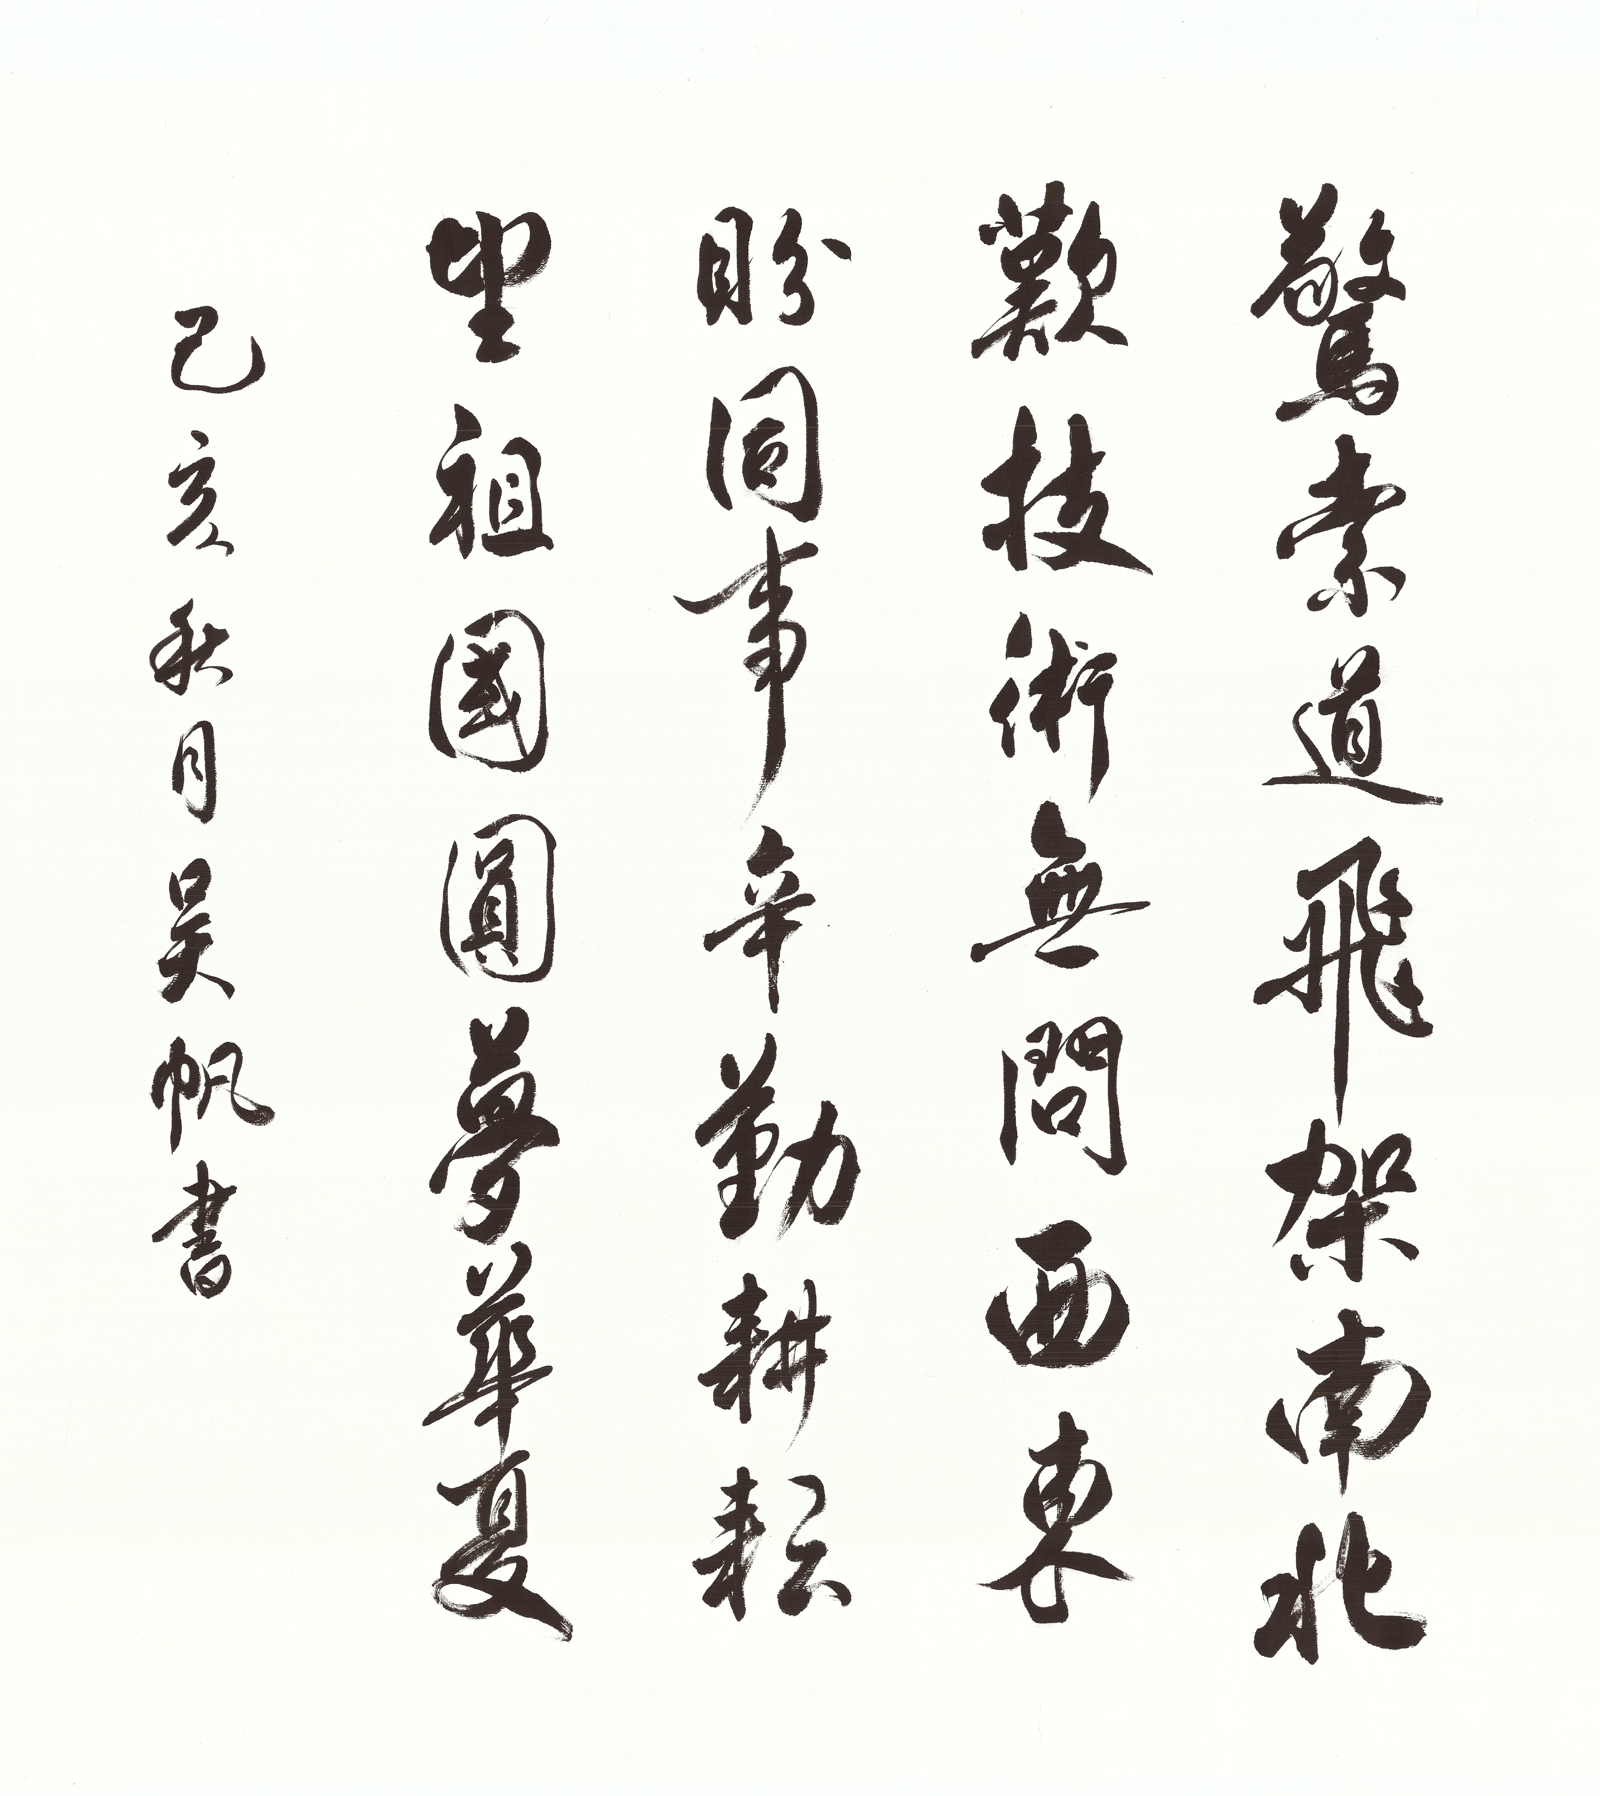 驚索道飛架南北
歎技術無問西東
盼同事辛勤耕耘
望祖國圓夢華夏
己亥秋月吴帆書